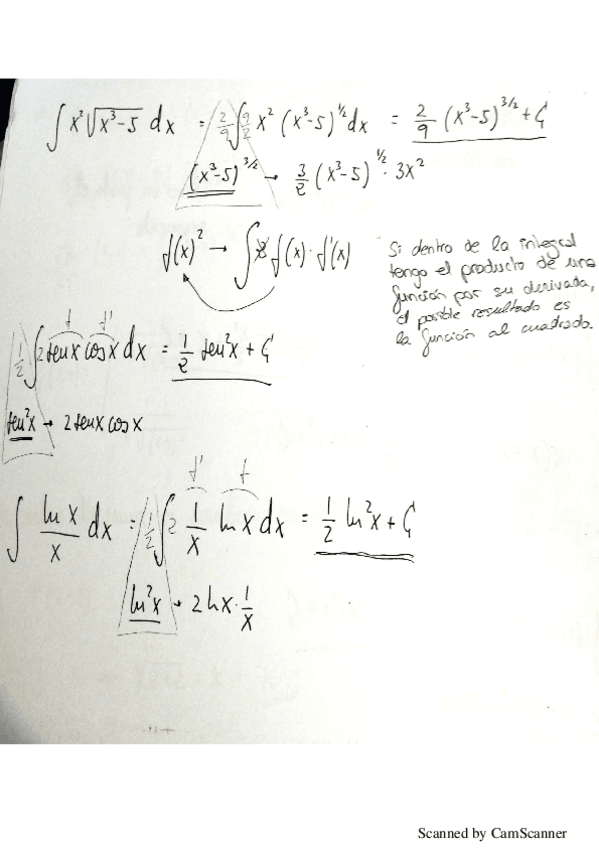 ∫ x² √(x³-5) dx = 2/9 ∫ 9/2 x² (x³-5)^1/2 dx = 2/9 (x³-5)^3/2 + C
(x³-5)^3/2 → 3/2 (x³-5)^1/2 · 3x²
f(x)² → ∫ 2 f(x) · f'(x)
Si dentro de la integral
tengo el producto de una
función por su derivada,
el posible resultado es
la función al cuadrado.
f f'
1/2 ∫ 2 sen x cos x dx = 1/2 sen² x + C
sen² x → 2 sen x cos x
f' f
∫ ln x / x dx = 1/2 ∫ 2 1/x ln x dx = 1/2 ln² x + C
ln² x → 2 ln x · 1/x
Scanned by CamScanner